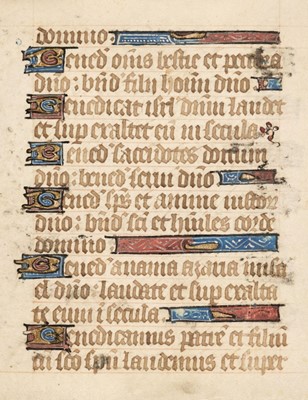 domino
Bened om̄s bestie et pecora
dn̄o: bn̄d filij hom̄ dn̄o
Benedicat isrl dn̄m laudet
et sup exaltet eū in secula
Bened sacerdotes domini
dn̄o: bened serui dn̄o
Bened sp̄s et anime iustor
dn̄o: bn̄d sc̄i et hūiles corde
domino
Bened anania azaria misa
el dn̄o: laudate et sup exalta
te eum i secula
Benedicamus patrē et filiū
cū sc̄o sp̄u laudemus et super